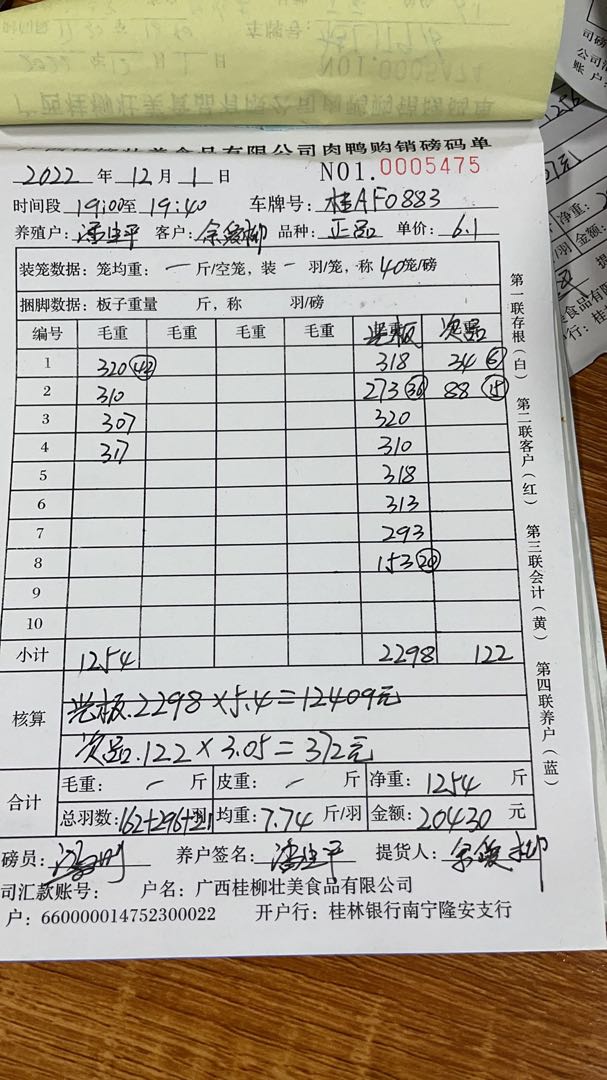 壮美食品有限公司肉鸭购销磅码单
2022 年 12 月 1 日 NO1.0005475
时间段 19:00至 19:40 车牌号: 桂AF0883
养殖户: 潘生平 客户: 余爱柳 品种: 正品 单价: 6.1
装笼数据: 笼均重: 一 斤/空笼, 装 一 羽/笼, 称 40笼/磅
捆脚数据: 板子重量 斤, 称 羽/磅
编号 毛重 毛重 毛重 毛重 光板 次品
1 320 (42) 318 34 (6)
2 310 273 (36) 88 (15)
3 307 320
4 317 310
5 318
6 313
7 293
8 153 (20)
9
10
小计 1254 2298 122
核算 光板.2298×5.4=12409元
次品.122×3.05=372元
合计 毛重: 一 斤 皮重: 一 斤 净重: 1254 斤
总羽数: 162+296+21 羽 均重: 7.74 斤/羽 金额: 20430 元
磅员: 养户签名: 潘生平 提货人: 余爱柳
司汇款账号: 户名: 广西桂柳壮美食品有限公司
户: 660000014752300022 开户行: 桂林银行南宁隆安支行
第一联存根(白)
第二联客户(红)
第三联会计(黄)
第四联养户(蓝)